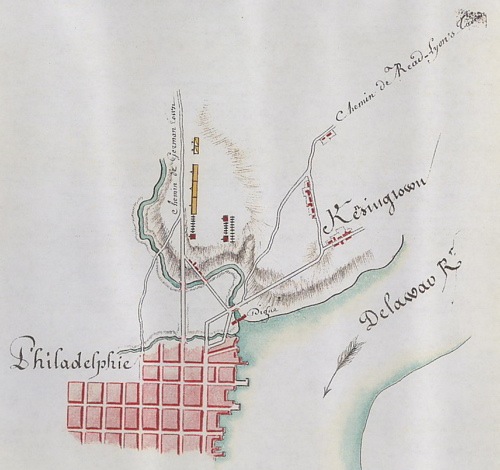 Chemin de Read-Lyon's
Chemin de German Town
Kesingtown
Delawar R.
Digue
Philadelphie